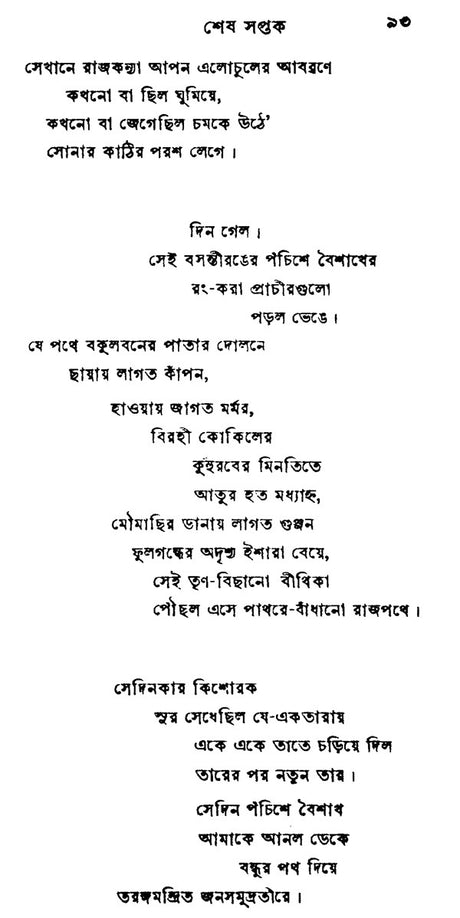 শেষ সপ্তক ৯৩
সেখানে রাজকন্যা আপন এলোচুলের আবরণে
কখনো বা ছিল ঘুমিয়ে,
কখনো বা জেগেছিল চমকে উঠে'
সোনার কাঠির পরশ লেগে।
দিন গেল।
সেই বসন্তীরঙের পঁচিশে বৈশাখের
রং-করা প্রাচীরগুলো
পড়ল ভেঙে।
যে পথে বকুলবনের পাতার দোলনে
ছায়ায় লাগত কাঁপন,
হাওয়ায় জাগত মর্মর,
বিরহী কোকিলের
কুহুরবের মিনতিতে
আতুর হত মধ্যাহ্ন,
মৌমাছির ডানায় লাগত গুঞ্জন
ফুলগন্ধের অদৃশ্য ইশারা বেয়ে,
সেই তৃণ-বিছানো বীথিকা
পৌঁছল এসে পাথরে-বাঁধানো রাজপথে।
সেদিনকার কিশোরক
সুর সেধেছিল যে-একতারায়
একে একে তাতে চড়িয়ে দিল
তারের পর নতুন তার।
সেদিন পঁচিশে বৈশাখ
আমাকে আনল ডেকে
বন্ধুর পথ দিয়ে
তরঙ্গমন্দ্রিত জনসমুদ্রতীরে।